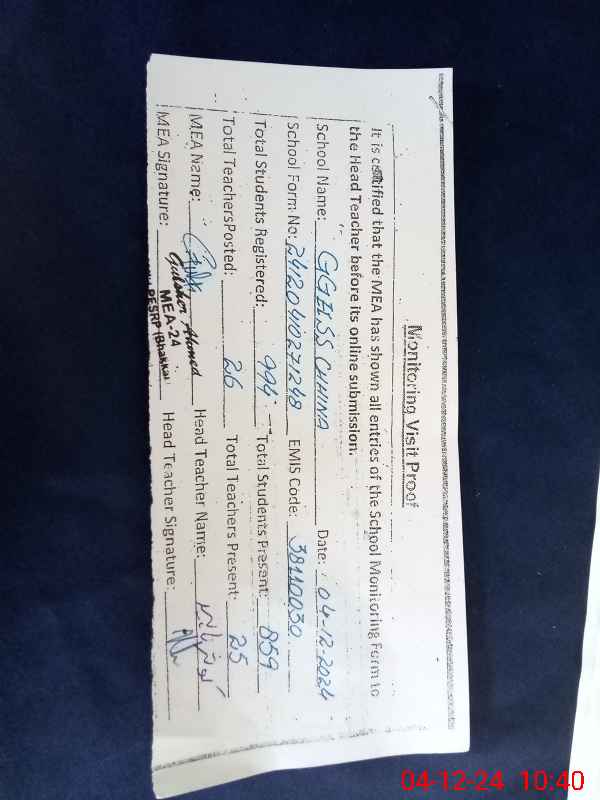 Monitoring Visit Proof
It is certified that the MEA has shown all entries of the School Monitoring Form to
the Head Teacher before its online submission.
School Name: GGHSS CHHINA Date: 04-12-2024
School Form No: 2412040271248 EMIS Code: 38110030
Total Students Registered: 994 Total Students Present: 859
Total TeachersPosted: 26 Total Teachers Present: 25
MEA Name: Gulsher Ahmed Head Teacher Name:
MEA Signature: MEA-24 Head Teacher Signature:
PESRP (Bhakkar
04-12-24 10:40